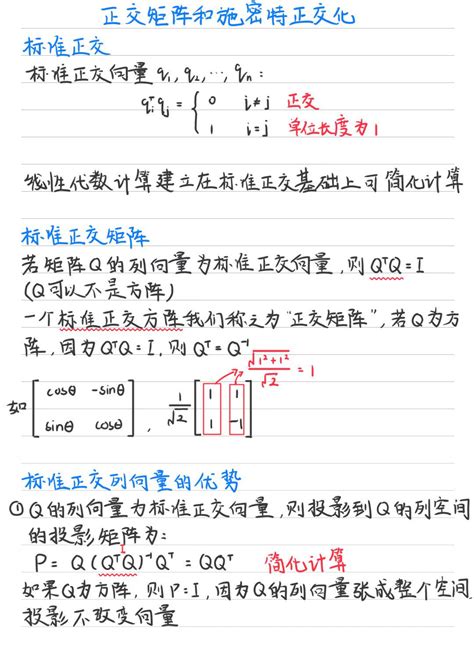 正交矩阵和施密特正交化
标准正交
标准正交向量 q₁, q₂, ⋯, qₙ：
qᵢᵀqⱼ = { 0  i≠j  正交
1  i=j  单位长度为1
线性代数计算建立在标准正交基础上可简化计算
标准正交矩阵
若矩阵Q的列向量为标准正交向量，则QᵀQ=I
(Q可以不是方阵)
一个标准正交方阵我们称之为“正交矩阵”，若Q为方
阵，因为QᵀQ=I，则Qᵀ=Q⁻¹
√(1²+1²)/√2 = 1
如 [cosθ -sinθ; sinθ cosθ]，1/√2 [1 1; 1 -1]
标准正交列向量的优势
① Q的列向量为标准正交向量，则投影到Q的列空间
的投影矩阵为：
I
P = Q(QᵀQ)⁻¹Qᵀ = QQᵀ  简化计算
如果Q为方阵，则P=I，因为Q的列向量张成整个空间
投影不改变向量